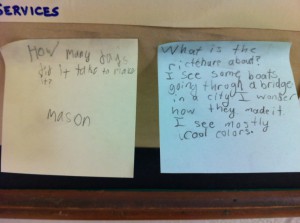 SERVICES
How many days
did it take to make
it?
mason
What is the
pictchore about?
I see some boats
going through a bridge
in a city I wonder
how they made it
I see mostly
cool colors.